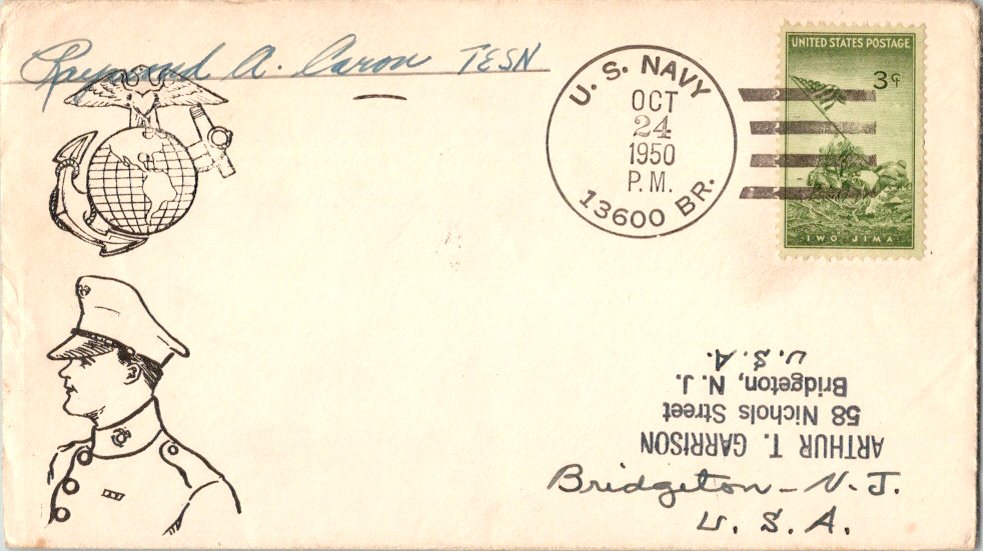 Raymond A. Caron TESN
U. S. NAVY
OCT
24
1950
P.M.
13600 BR.
UNITED STATES POSTAGE
3¢
IWO JIMA
ARTHUR T. GARRISON
58 Nichols Street
Bridgeton, N. J.
U. S. A.
Bridgeton - N. J.
U. S. A.